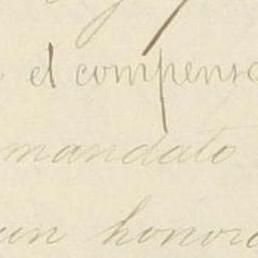 el compens
mandato
un honor